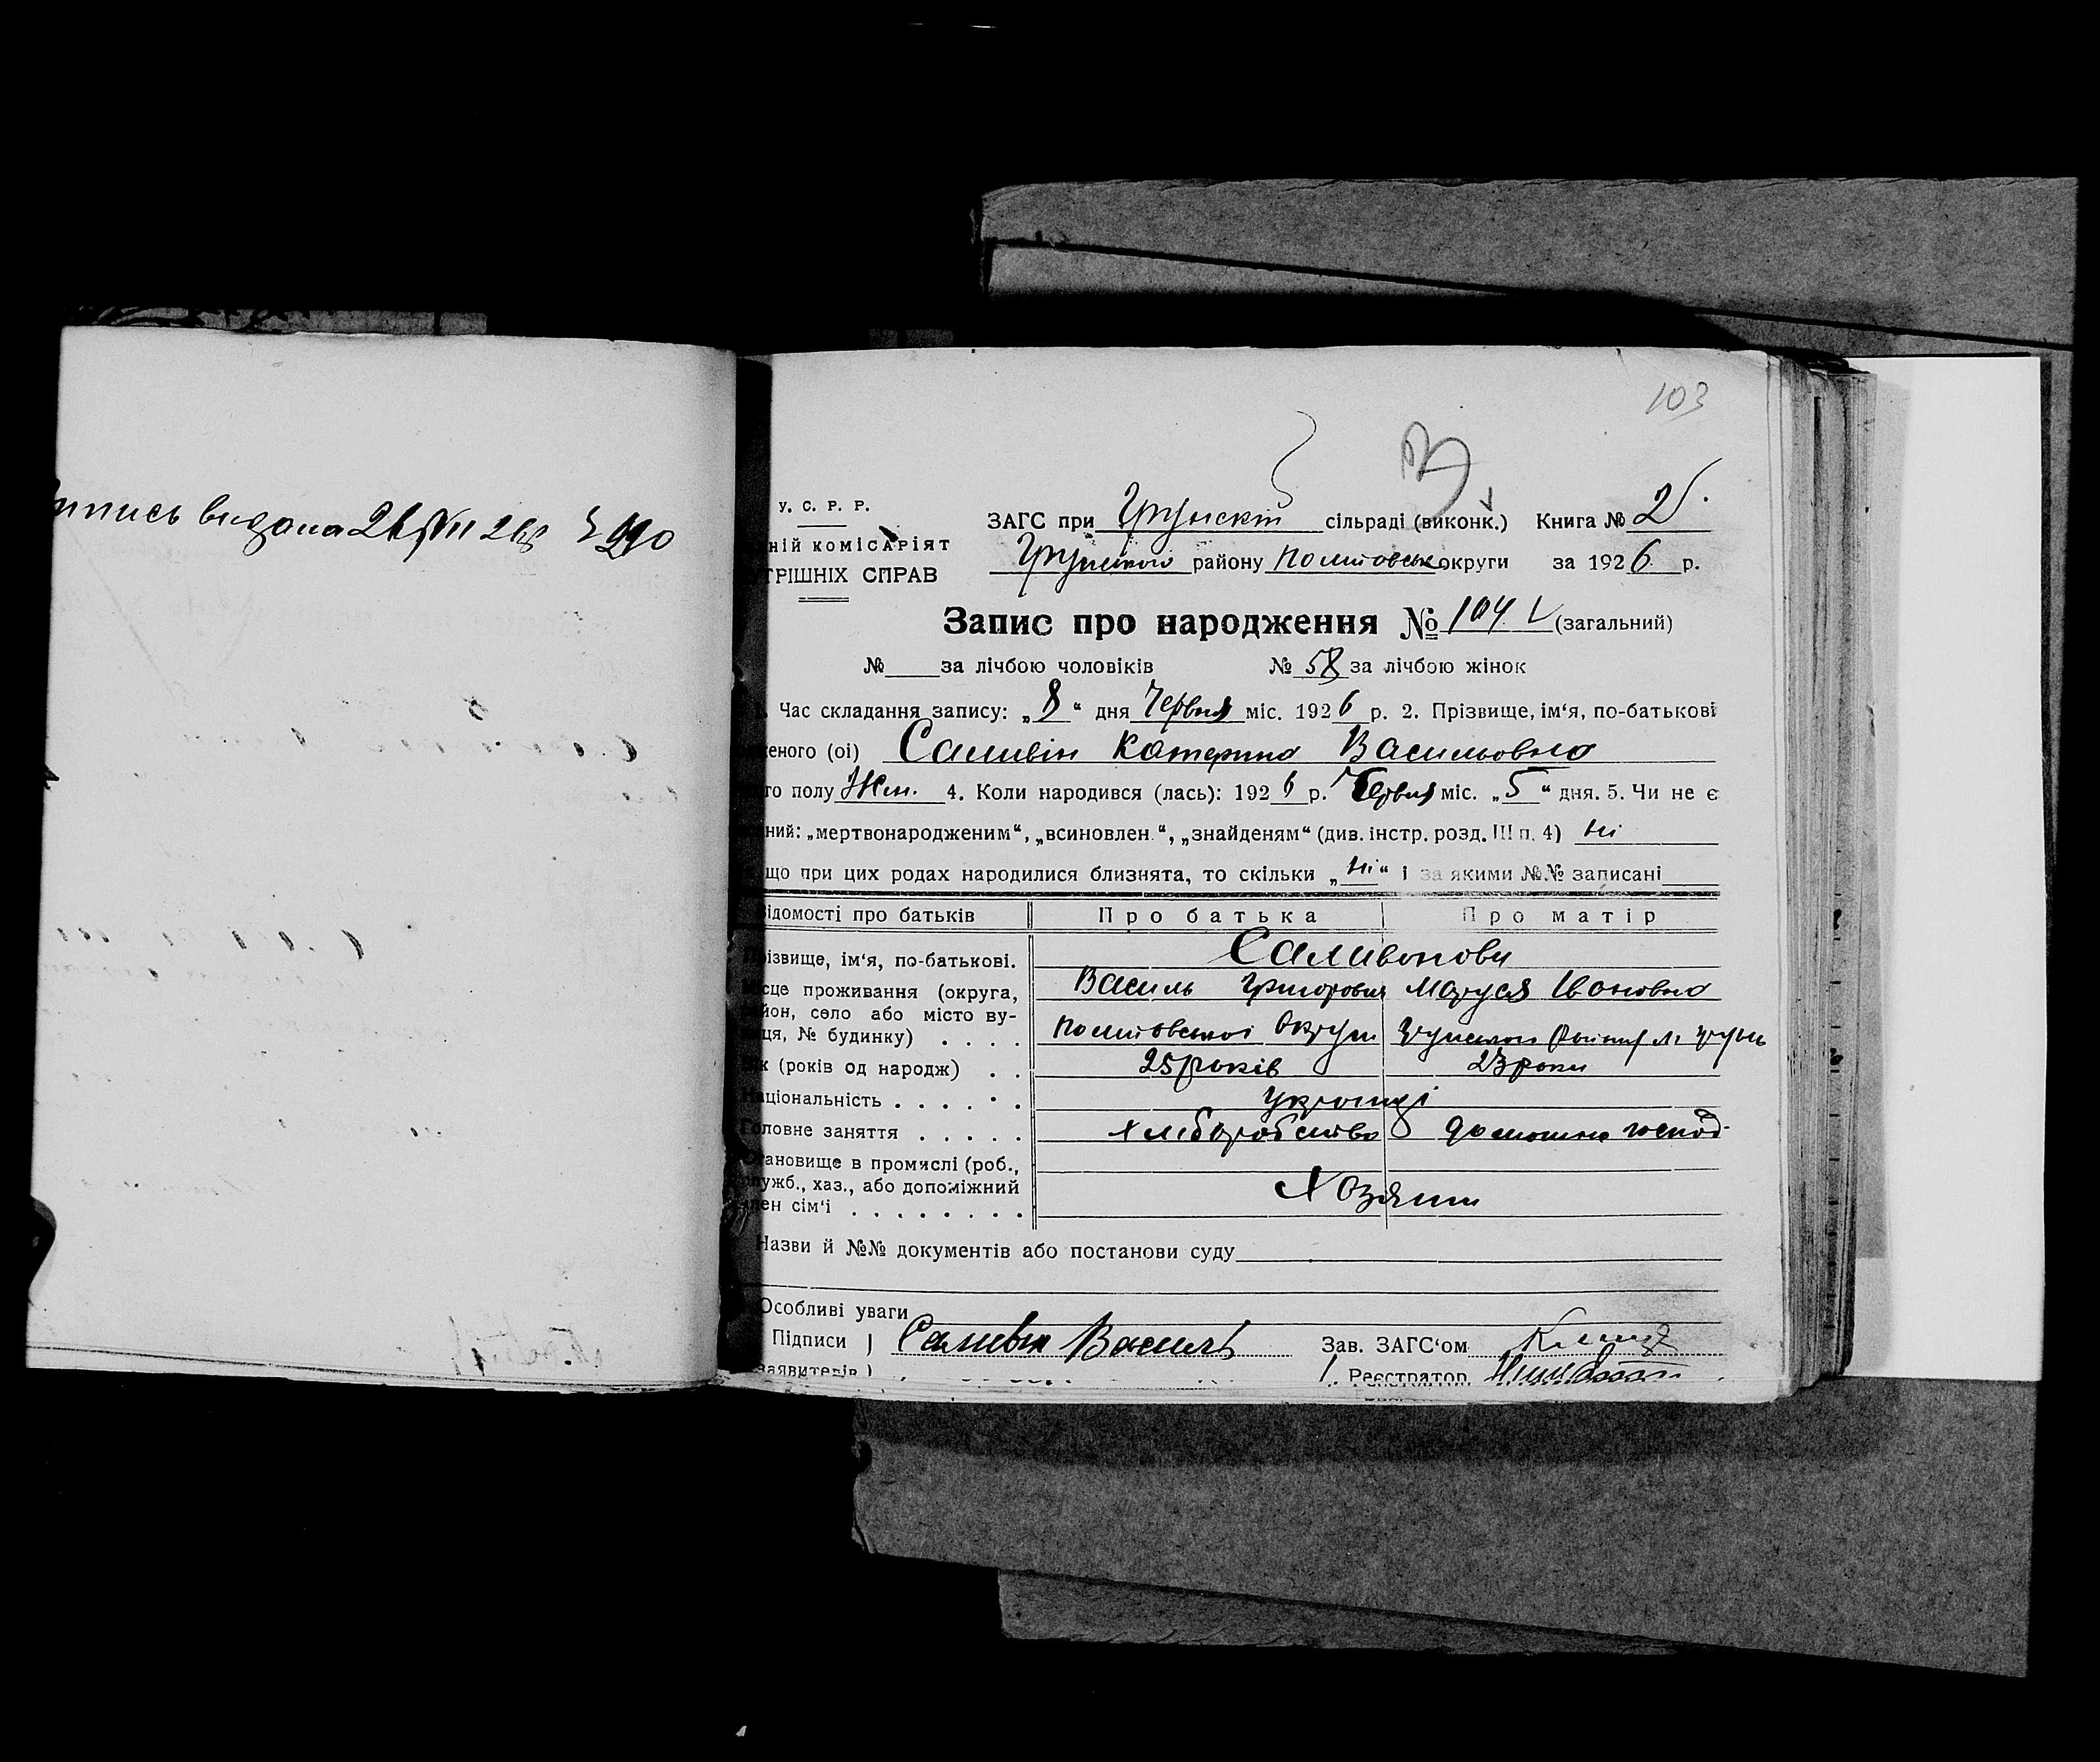 видана 26/VII 26 990
103
У. С. Р. Р.
ній комісаріят
трішніх справ
ЗАГС при Грунській сільраді (виконк.) Книга № 2
Грунського району Полтовськ округи за 1926 р.
Запис про народження № 104 (загальний)
№ за лічбою чоловіків № 58 за лічбою жінок
Час складання запису: „8“ дня Червня міс. 1926 р. 2. Прізвище, ім‘я, по-батькові
еного (ої) Саливін Катерина Васильовна
го полу Жен. 4. Коли народився (лась): 1926 р. Червня міс. „5“ дня. 5. Чи не є
ний: „мертвонародженим“, „всиновлен.“, „знайденям“ (див. інстр. розд. III п. 4) ні
що при цих родах народилися близнята, то скільки „ні“ і за якими №№ записані
ідомості про батьків Про батька Про матір
різвище, ім‘я, по-батькові. Саливонови
Василь Григорович Маруся Івановна
сце проживання (округа,
йон, село або місто ву-
ця, № будинку) . . . . Полтовської Округи Грунського Району м. Грунь
ік (років од народж) . . 25 років 23 роки
аціональність . . . . . . Українці
оловне заняття . . . . . хліборобство домашнє господ.
тановище в промислі (роб.,
лужб., хаз., або допоміжний
лен сім‘ї . . . . . . . . Хозяїни
Назви й №№ документів або постанови суду
Особливі уваги
Підписи ) Саливін Василь Зав. ЗАГС‘ом
заявителів ) Реєстратор